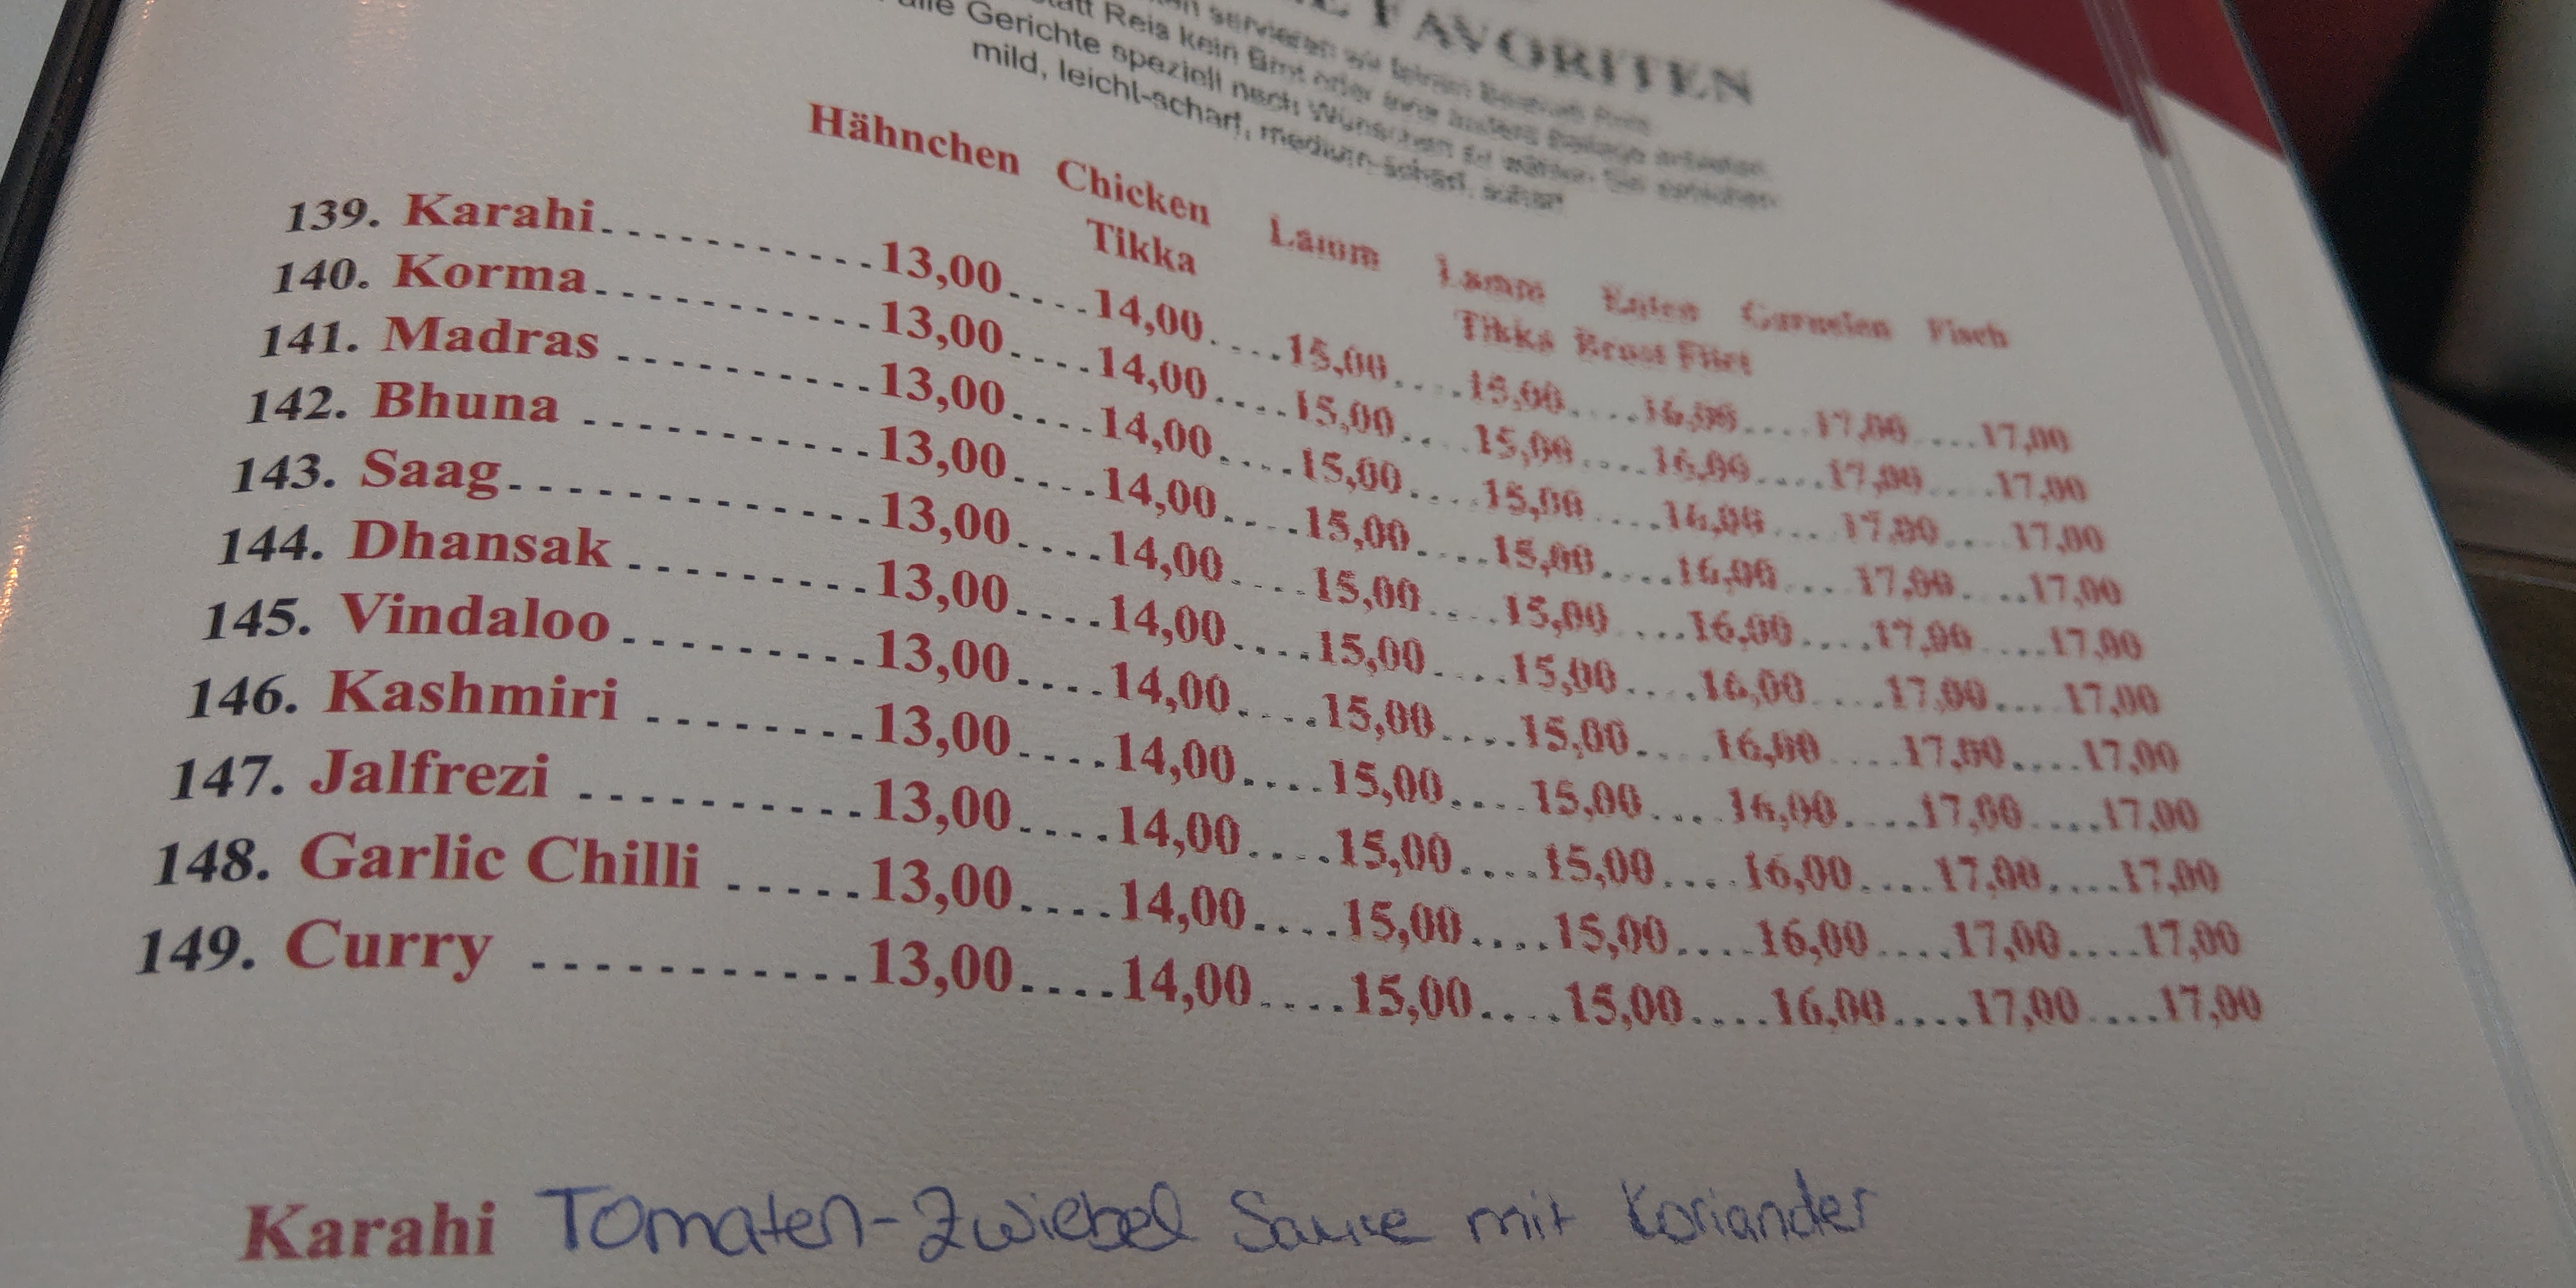 FAVORITEN
servieren wir
statt Reis kein Brot oder eine andere Beilage
alle Gerichte speziell nach Wünschen
mild, leicht-scharf, medium-scharf, scharf
Hähnchen Chicken Lamm Lamm Enten Garnelen Fisch
Tikka Tikka Brust Filet
139. Karahi..........13,00....14,00....15,00....15,00....16,00....17,00....17,00
140. Korma..........13,00....14,00....15,00....15,00....16,00....17,00....17,00
141. Madras.........13,00....14,00....15,00....15,00....16,00....17,00....17,00
142. Bhuna..........13,00....14,00....15,00....15,00....16,00....17,00....17,00
143. Saag.............13,00....14,00....15,00....15,00....16,00....17,00....17,00
144. Dhansak.........13,00....14,00....15,00....15,00....16,00....17,00....17,00
145. Vindaloo.........13,00....14,00....15,00....15,00....16,00....17,00....17,00
146. Kashmiri........13,00....14,00....15,00....15,00....16,00....17,00....17,00
147. Jalfrezi..........13,00....14,00....15,00....15,00....16,00....17,00....17,00
148. Garlic Chilli.....13,00....14,00....15,00....15,00....16,00....17,00....17,00
149. Curry............13,00....14,00....15,00....15,00....16,00....17,00....17,00
Karahi Tomaten-Zwiebel Sauce mit Koriander